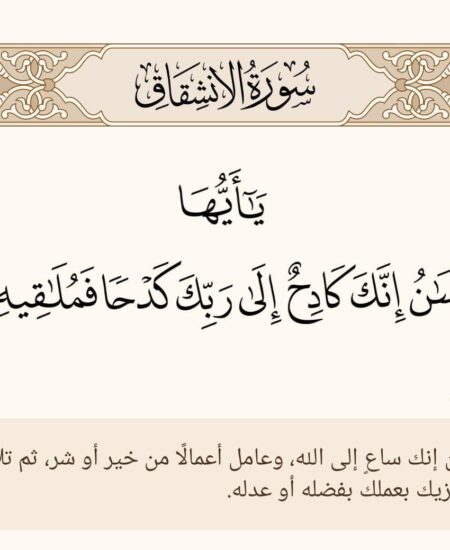 سُورَةُ الانشِقَاقِ
يَٰٓأَيُّهَا
إِنَّكَ كَادِحٌ إِلَىٰ رَبِّكَ كَدۡحٗا فَمُلَٰقِيهِ
إنك ساعٍ إلى الله، وعامل أعمالًا من خير أو شر، ثم
بعملك بفضله أو عدله.